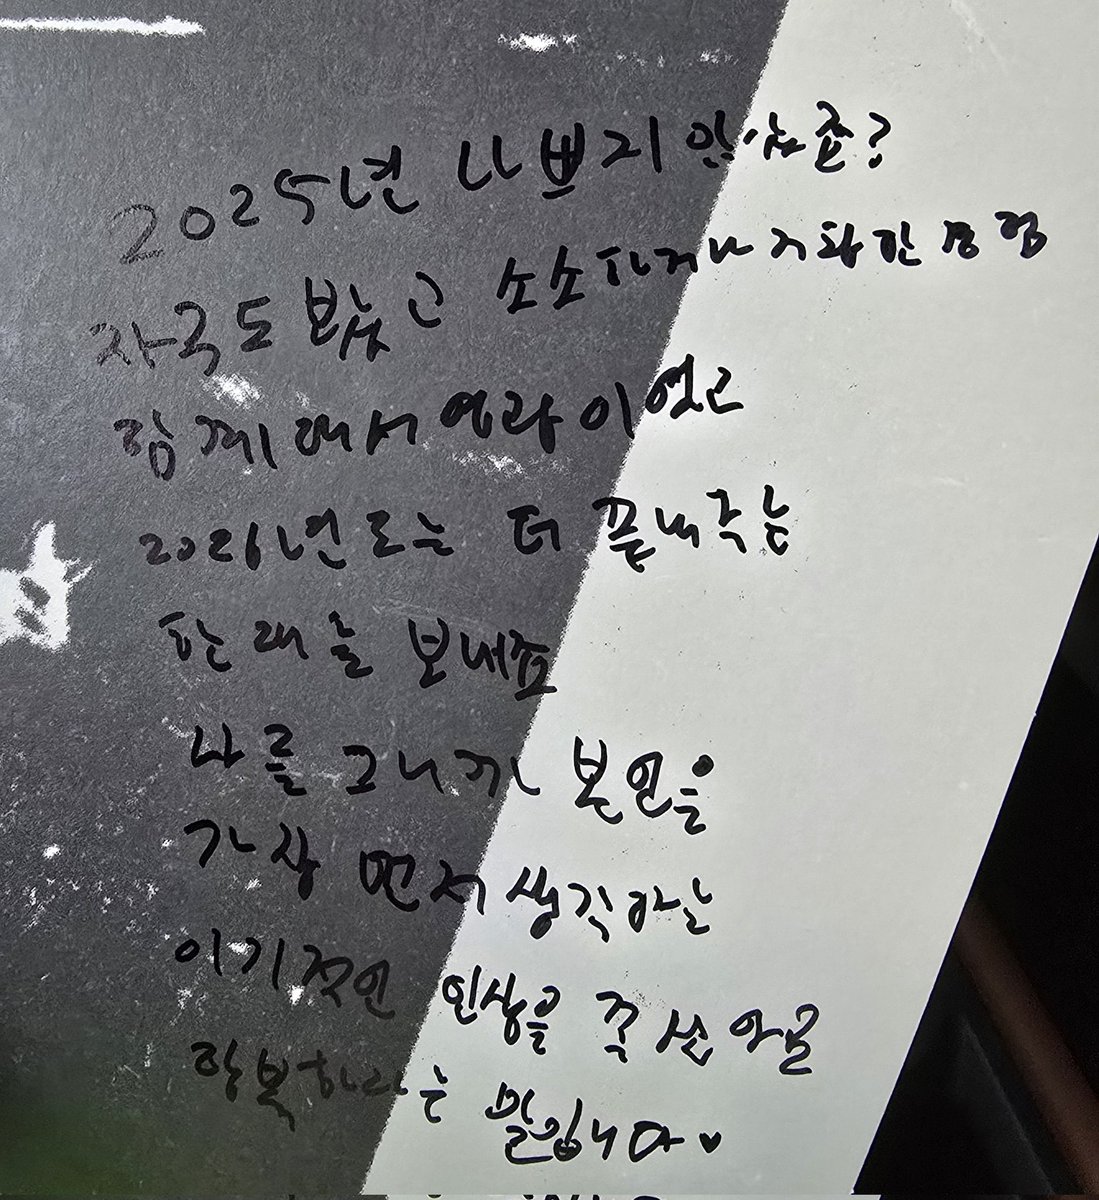 2025년 나쁘지 않았죠?
작곡도 받고 소소하거나 거창한 경험
함께해서 영광이었고
2026년도는 더 끝내주는
한 해를 보내죠
나를 그니까 본인을
가장 먼저 생각하는
이기적인 인생을
행복하라는 말입니다♥